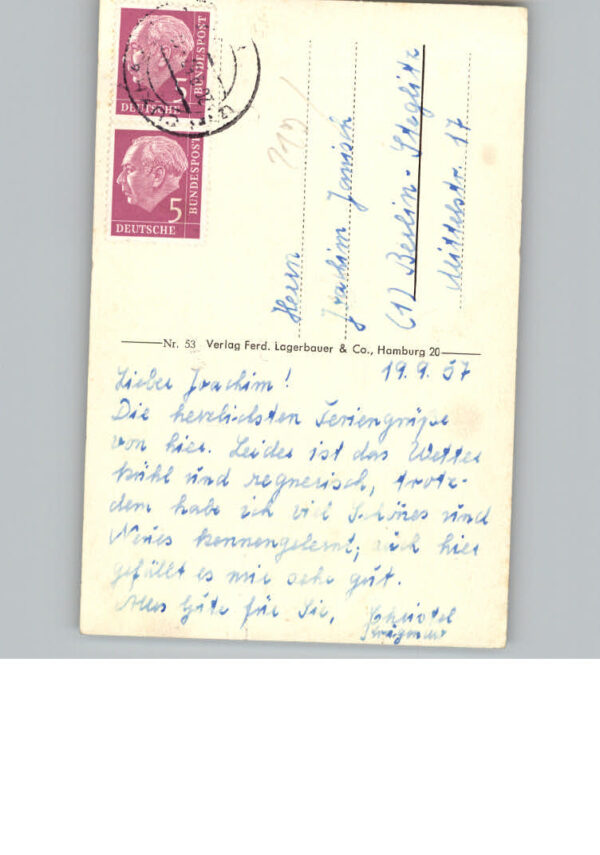 5
DEUTSCHE
BUNDESPOST
5
DEUTSCHE
BUNDESPOST
Herrn
Joachim Janisch
(1) Berlin-Steglitz
Mittelstr. 17
Nr. 53 Verlag Ferd. Lagerbauer & Co., Hamburg 20
19.9.57
Lieber Joachim!
Die herzlichsten Feriengrüße
von hier. Leider ist das Wetter
kühl und regnerisch, trotz-
dem habe ich viel Schönes und
Neues kennengelernt; auch hier
gefällt es mir sehr gut.
Alles Gute für Sie,